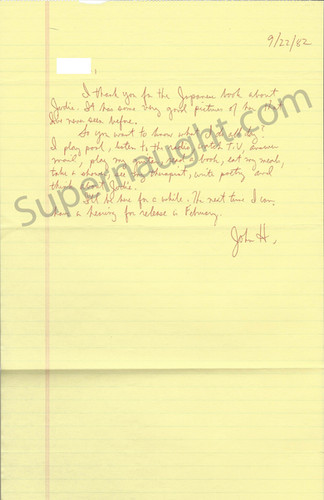 9/22/82
,
I thank you for the Japanese book about
Jodie. It has some very good pictures of her that
I've never seen before.
So you want to know what I do all day?
I play pool, listen to the radio, watch T.V., answer
mail, play my guitar, read a book, eat my meals,
take a shower, see my therapist, write poetry and
think about Jodie.
I'll be here for a while. The next time I can
have a hearing for release is February.
John H.
Supernaught.com